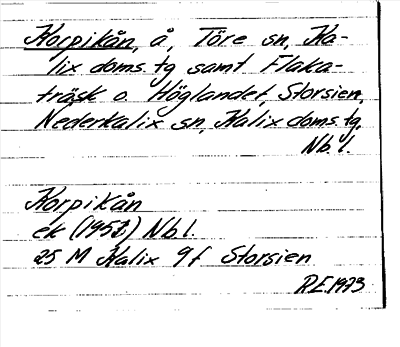 Korpikån, å, Töre sn, Ka-
lix doms.tg samt Flaka-
träsk o. Höglandet, Storsien,
Nederkalix sn, Kalix doms.tg,
Nb.l.
Korpikån
ek (1953) Nb.l.
25 M Kalix 9f Storsien
R.E. 1973